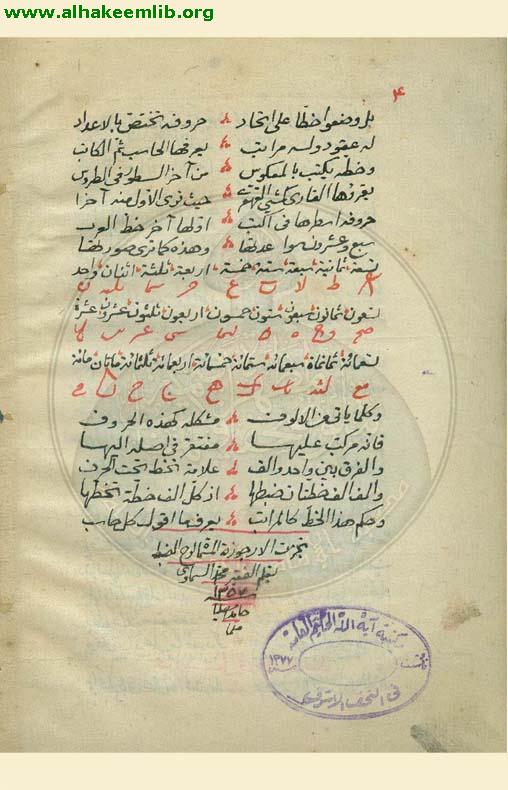 www.alhakeemlib.org
٤
بل وضعوا خطا على اتحاد حروفه تختص بالاعداد
له عقود وله مراتب يعرفها الحاسب ثم الكاتب
وخطه يكتب بالمعكوس من آخر السطر في الطروس
يقرؤها القارئ كمشي القهقرى حيث نرى الاول منه آخرا
حروفه اسطرها في الكتب اولها آخر خط العرب
سبع وعشرون سوا عدتها وهذه كما ترى صورتها
تسعة ثمانية سبعة ستة خمسة اربعة ثلثة اثنان واحد
تسعون ثمانون سبعون ستون خمسون اربعون ثلثون عشرون عشرة
تسعمائة ثمانمائة سبعمائة ستمائة خمسمائة اربعمائة ثلثمائة مائتان مائة
وكلما ياتي من الالوف مشكله كهذه الحروف
فانه مركب عليها مفتقر في اصله اليها
والفرق بين واحد والف علامة تخط تحت الحرف
والف الف خطتان ضبطها اذ كل الف خطة تخطها
وحكم هذا الخط كالمراتب يعرف ما اقول كل حاسب
تمت الارجوزة
بقلم محمد السماوي
١٣٥٧
حامدا مصليا
مكتبة آية الله الحكيم العامة
١٣٧٧
في النجف الاشرف